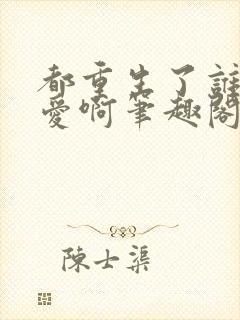 都重生了誰
愛啊筆趣閣
陳士渠